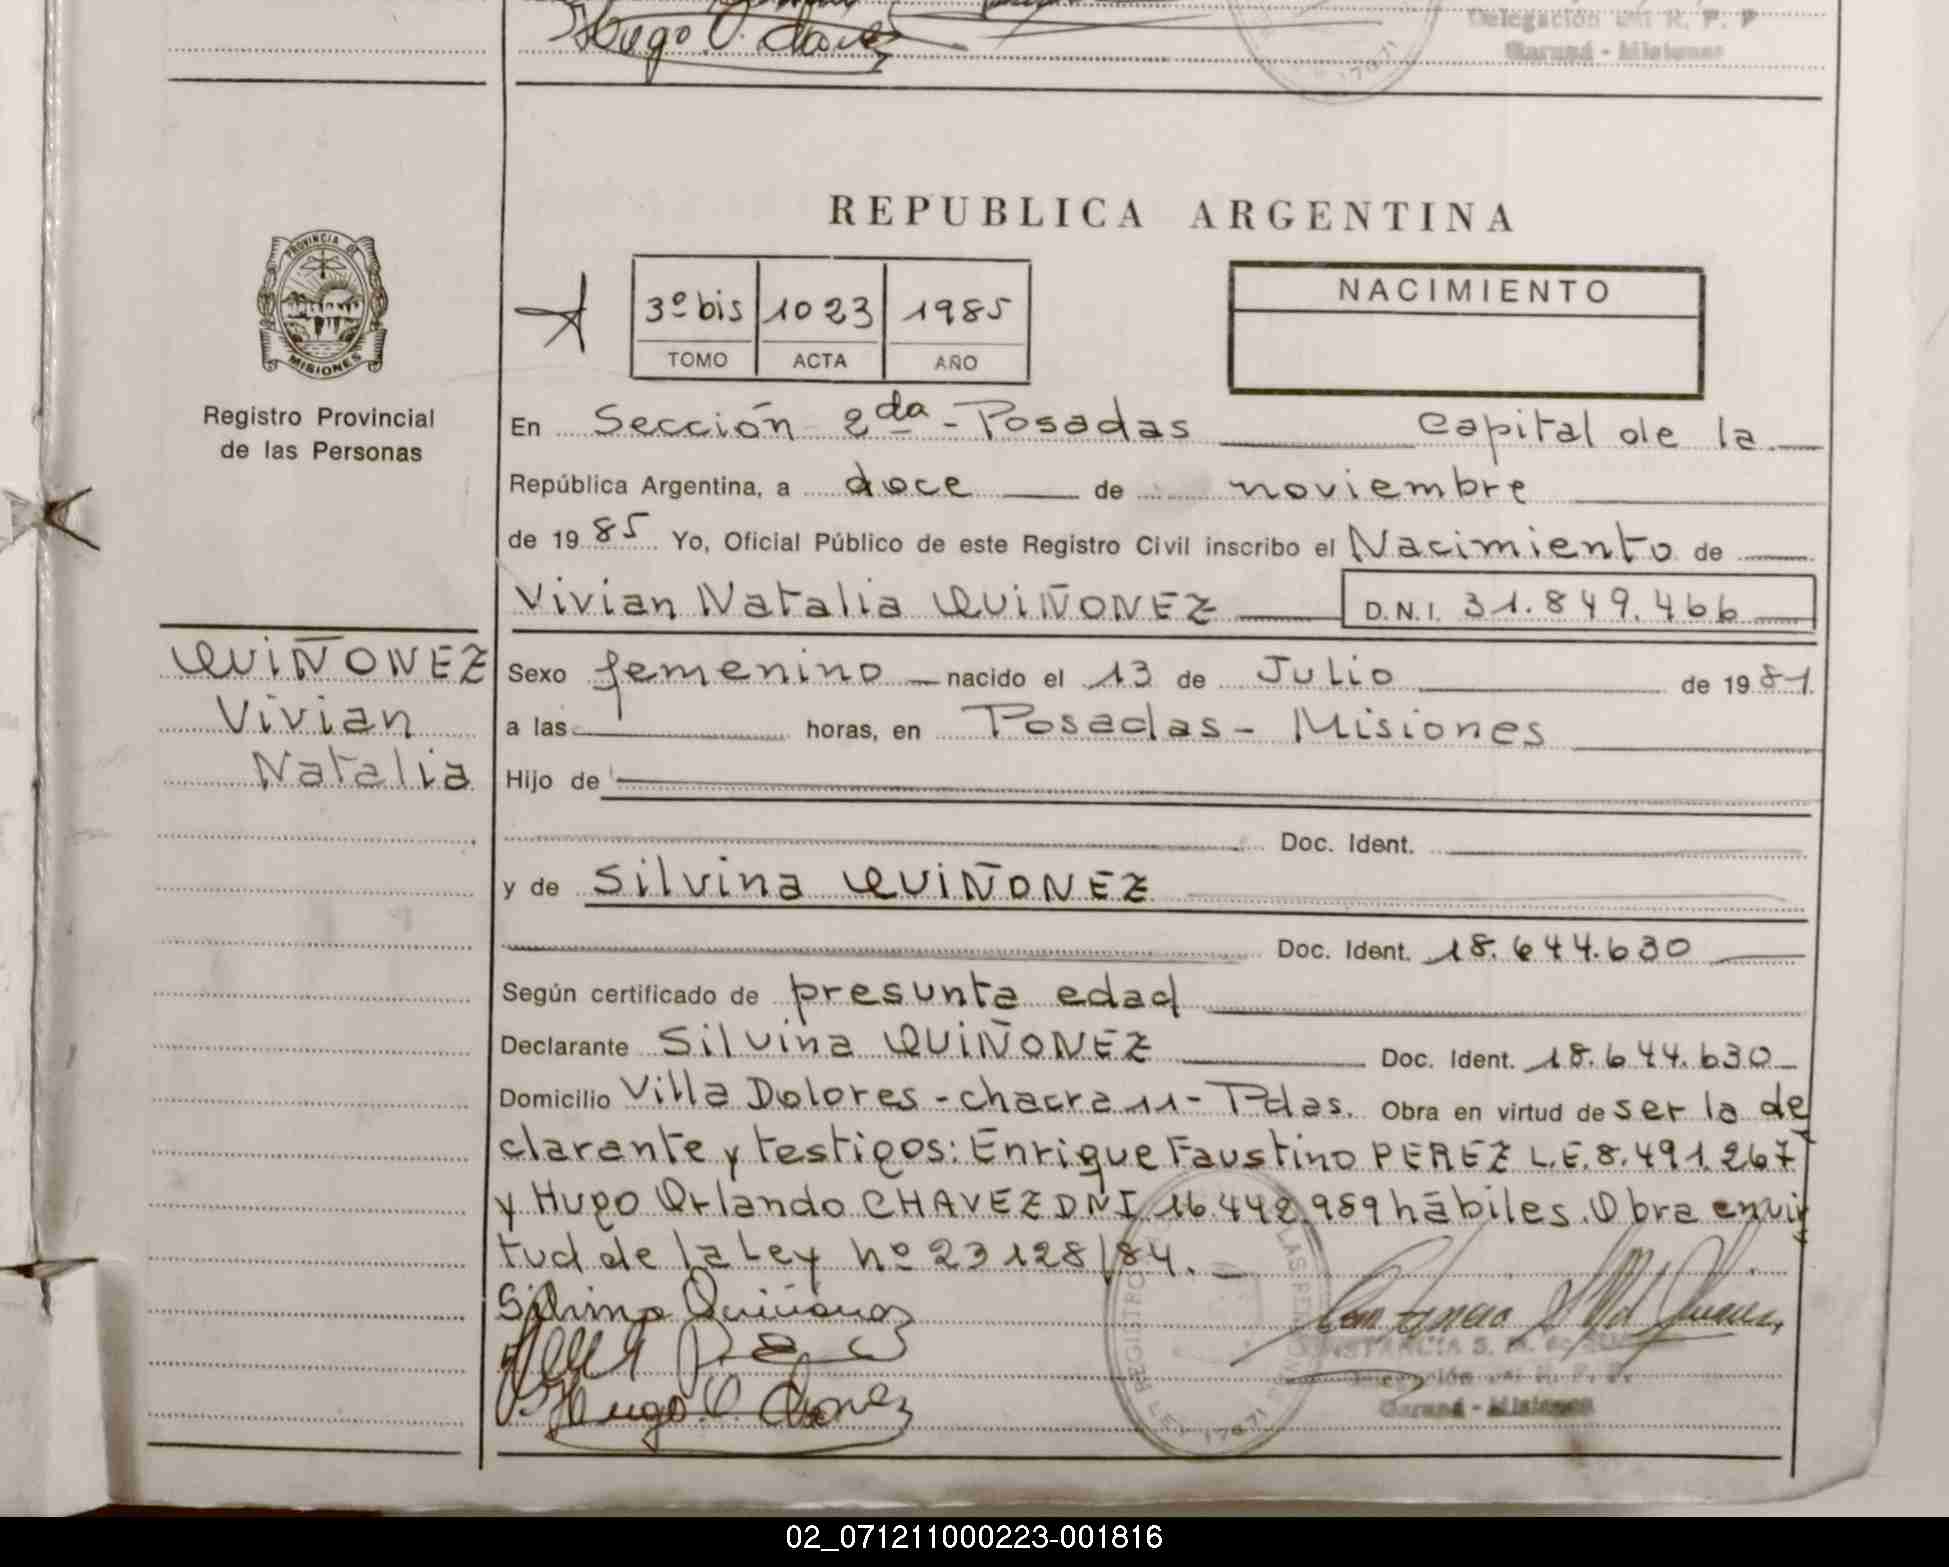 Hugo O. Chavez
Delegación R. P. P
Garupá - Misiones
REPUBLICA ARGENTINA
PROVINCIA DE
MISIONES
Registro Provincial
de las Personas
3º bis 1023 1985
TOMO ACTA AÑO
NACIMIENTO
En Sección 2da - Posadas Capital de la
República Argentina, a doce de noviembre
de 1985 Yo, Oficial Público de este Registro Civil inscribo el Nacimiento de
Vivian Natalia QUIÑONEZ D.N.I. 31.849.466
QUIÑONEZ
Vivian
Natalia
Sexo femenino nacido el 13 de Julio de 1981
a las horas, en Posadas - Misiones
Hijo de
Doc. Ident.
y de Silvina QUIÑONEZ
Doc. Ident. 18.644.630
Según certificado de presunta edad
Declarante Silvina QUIÑONEZ Doc. Ident. 18.644.630
Domicilio Villa Dolores - chacra 11 - Pdas. Obra en virtud de ser la de
clarante y testigos: Enrique Faustino PEREZ L.E. 8.491.267
y Hugo Orlando CHAVEZ DNI 16.442.989 hábiles. Obra en vir
tud de la Ley nº 23128/84.
Silvina Quiñonez
Hugo O. Chavez
REGISTRO LAS PERSONAS
LEY 17671
CONSTANCIA S.
Delegación R. P. P.
Garupá - Misiones
02_071211000223-001816